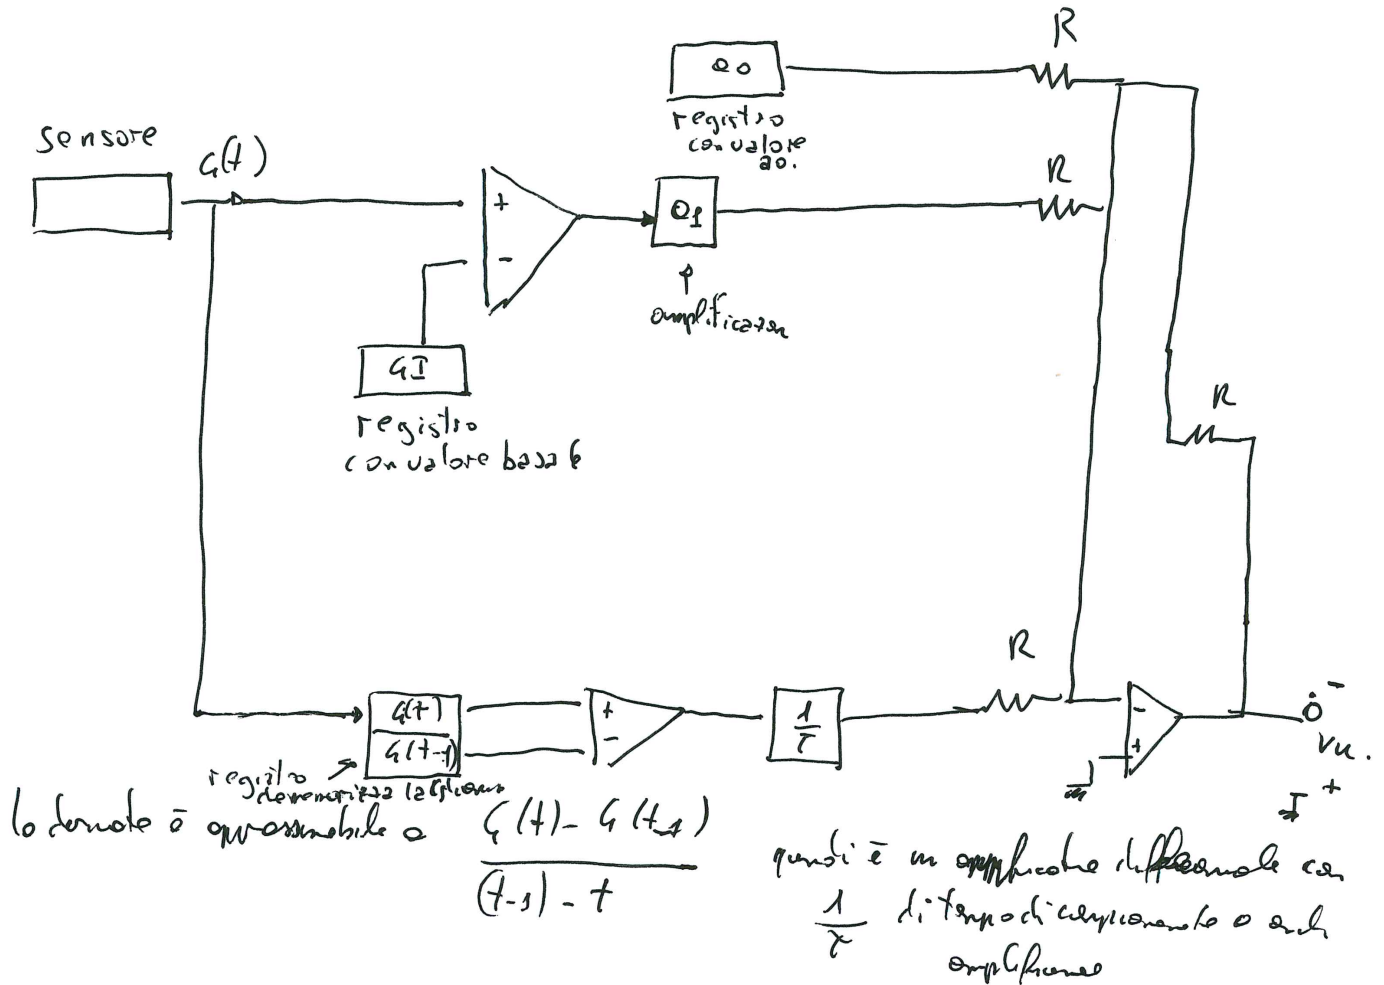 R
ao
registro
con valore
ao.
sensore
G(t)
R
+
-
a1
amplificatore
GI
registro
con valore basale
R
R
G(t)
G(t-1)
+
-
1
τ
-
+
-
Vu.
+
registro
la derivata è approssimabile a
G(t) - G(t-1)
(t-1) - t
quindi è un amplificatore differenziale con
1
τ
di tempo di campionamento o
amplificazione